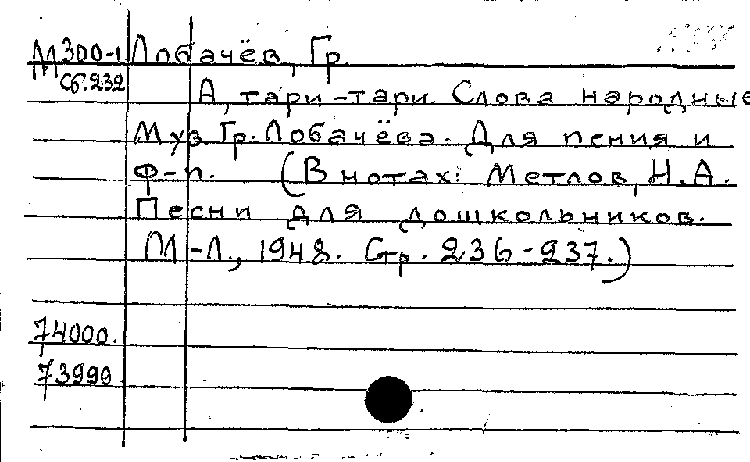 М300-1 Лобачёв, Гр.
Сб.232
А, тари-тари. Слова народные
Муз. Гр. Лобачёва. Для пения и
ф-п. (В нотах: Метлов, Н.А.
Песни для дошкольников.
М-Л., 1948. Стр. 236-237.)
74000.
73990